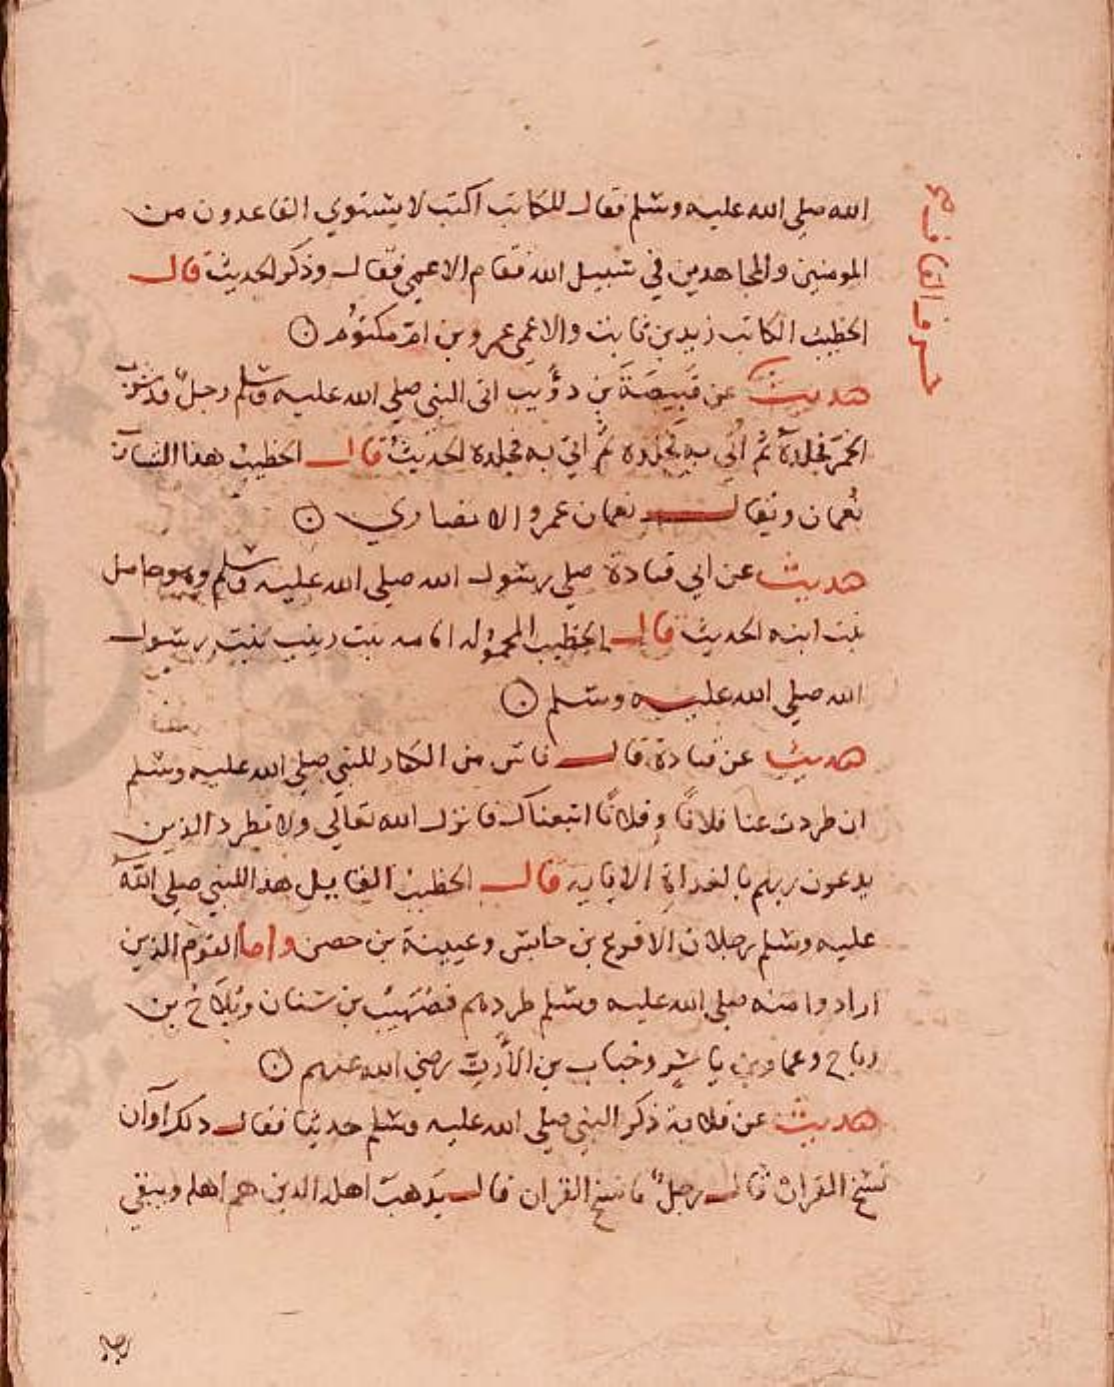 الله صلي الله عليه وسلم فقال للكاتب اكتب لا يستوي القاعدون من
المومنين والمجاهدين في سبيل الله فقام الاعمي فقال وذكر الحديث قال
الخطيب الكاتب زيد بن ثابت والاعمى عمرو بن ام مكتوم
حديث عن قبيصة بن ذؤيب اتى النبي صلي الله عليه وسلم رجل قد شرب
الخمر فجلده ثم اُتي به فجلده ثم اتي به فجلده الحديث قال الخطيب هذا
نُعمان ويقال نعمان عمرو الانصاري
حديث عن ابي قتادة صلي رسول الله صلي الله عليه وسلم وهو حامل
بنت ابنه الحديث قال الخطيب المحمول امامه بنت زينب بنت رسول
الله صلي الله عليه وسلم
حديث عن قتادة قال ناس من الكفار للنبي صلي الله عليه وسلم
ان طردت عنا فلانا وفلانا اتبعناك فانزل الله تعالي ولا تطرد الذين
يدعون ربهم بالغداة الاية قال الخطيب القايل هذا للنبي صلي الله
عليه وسلم رجلان الاقرع بن حابس وعيينة بن حصن واما القوم الذين
ارادوا منه صلي الله عليه وسلم طردهم فصُهيب بن سنان وبلال بن
رباح وعمار بن ياسر وخباب بن الأرتّ رضي الله عنهم
حديث عن قلابة ذكر النبي صلي الله عليه وسلم حديثا فقال ذلك اوان
نسخ القران قال رجل ما نسخ القران قال يذهب اهله الذين هم اهله ويبقي
رجال